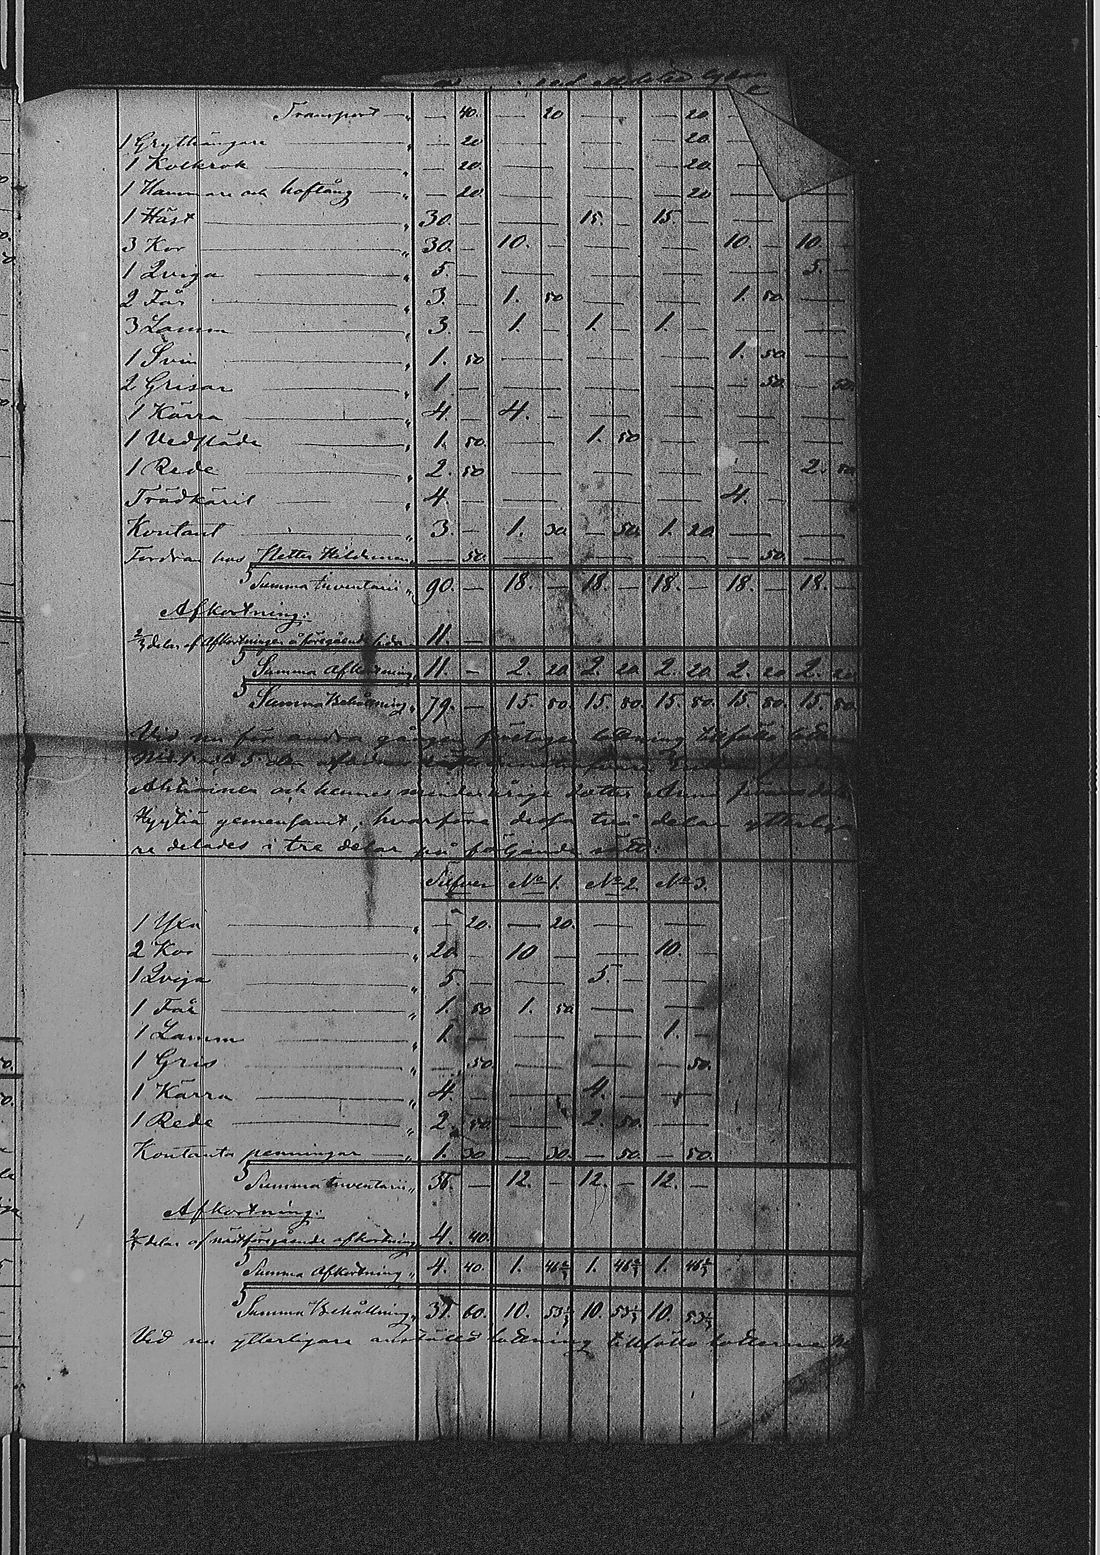 Transport — „ — 40. — 20 — — 20
1 Grythängare „ — 20 — — — 20
1 Kolkrok „ — 20. — — — 20.
1 Hammare och hoftång „ — 20. — — — 20
1 Häst „ 30. — — 15. — 15. — — —
3 Kor „ 30. — 10. — — — 10. — 10. —
1 Qviga „ 5. — — — — — 5. —
2 Får „ 3. — 1. 50 — — 1. 50. —
3 Lamm „ 3. — 1. — 1. — 1. — — —
1 Svin „ 1. 50 — — — 1. 50. —
2 Grisar „ 1. — — — — — 50. — 50.
1 Kärra „ 4. — 4. — — — — —
1 Vedsläde „ 1. 50. — 1. 50 — — —
1 Rede „ 2. 50 — — — — 2. 50
Trädkäril „ 4. — — — — 4. — —
Kontant „ 3. — 1. 30. — 50. 1. 20 — —
Fordran hos — 50. — — — — 50. —
Summa Inventarii „ 90. — 18. — 18. — 18. — 18. — 18. —
Afkortning:
delar af Afkortningen å föregående sida 11. —
Summa Afkortning „ 11. — 2. 20. 2. 20. 2. 20. 2. 20 2. 20
Summa Behållning „ 79. — 15. 80. 15. 80. 15. 80. 15. 80. 15. 80
Vid nu för andra gången företagen lottning tillföllo
och hennes minderåriga dotter Anna
gemensamt, hvarföre dessa två delar ytterliga
re delades i tre delar på följande sätt:
Silfver No 1. No 2. No 3.
1 Yxa „ — 20. — 20. — —
2 Kor „ 20 — 10 — — 10. —
1 Qviga „ 5. — — 5. — —
1 Får „ 1. 50 1. 50 — —
1 Lamm „ 1. — — — 1. —
1 Gris „ — 50. — — — 50.
1 Kärra „ 4. — — 4. — —
1 Rede „ 2. 50. — 2. 50. —
Kontanta penningar „ 1. 30. — 30. — 50. — 50.
Summa Inventarii „ 36. — 12. — 12. — 12. —
Afkortning:
delar af nästföregående afkortning 4. 40.
Summa Afkortning „ 4. 40. 1. 46⅔ 1. 46⅔ 1. 46⅔
Summa Behållning „ 31. 60. 10. 53⅓ 10. 53⅓ 10. 53⅓
Vid nu ytterligare anstäld lottning tillföllo lotterna